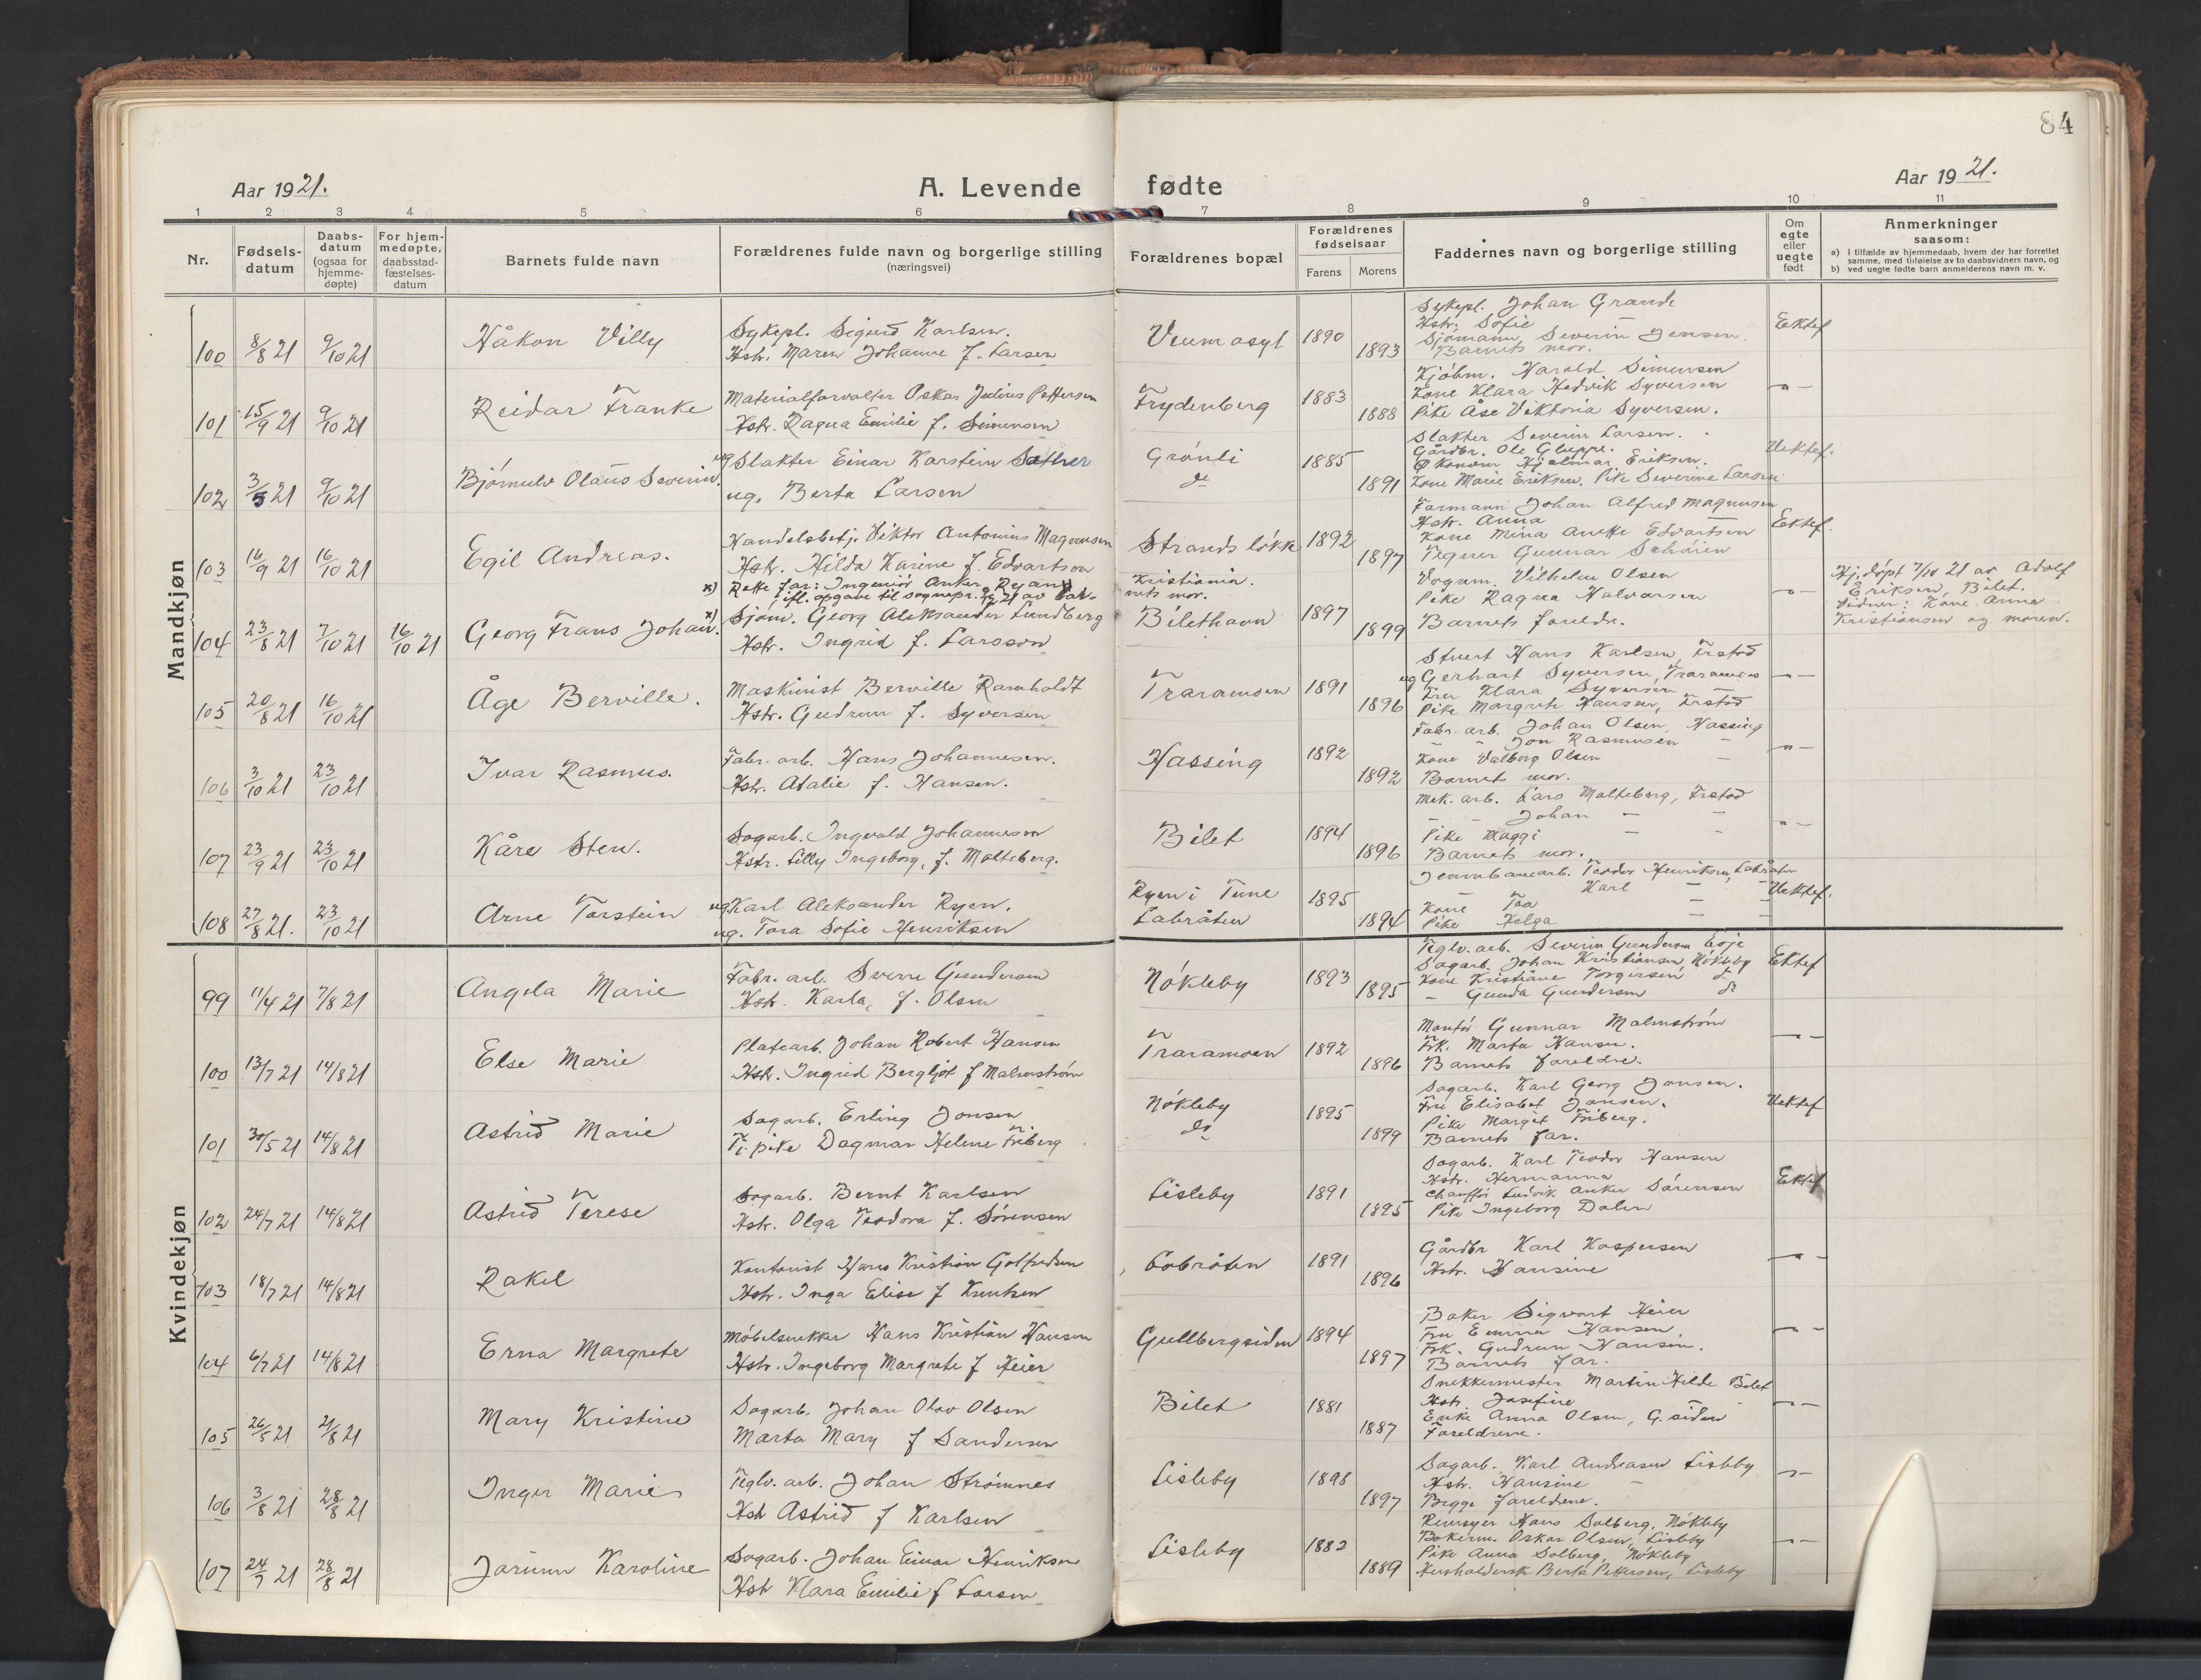 84
Aar 1921.
A. Levende fødte
Aar 1921.
1 2 3 4 5 6 7 8 9 10 11
Nr.
Fødsels-
datum
Daabs-
datum
(ogsaa for
hjemme-
døpte)
For hjem-
medøpte,
daabsstad-
fæstelses-
datum
Barnets fulde navn
Forældrenes fulde navn og borgerlige stilling
(næringsvei)
Forældrenes bopæl
Forældrenes
fødselsaar
Farens
Morens
Faddernes navn og borgerlige stilling
Om
egte
eller
uegte
født
Anmerkninger
saasom:
a) i tilfælde av hjemmedaab, hvem der har forrettet
samme, med tilføielse av to daabsvidners navn, og
b) ved uegte fødte barn anmelderens navn m. v.
Mandkjøn
100 8/8 21 9/10 21 Håkon Villy
Sykepl. Sigurd Karlsen.
Hstr. Maren Johanne f. Larsen
Veum asyl 1890 1893
Sykepl. Johan Grande
Hstr. Sofie —
Sjømann Severin Jensen.
Barnets mor.
Ektef
101 15/9 21 9/10 21 Reidar Franke
Materialforvalter Oskar Julius Pettersen
Hstr. Ragna Emilie f. Simensen
Frydenberg 1883 1888
Kjøbm. Harald Simensen
Kone Klara Hedvik Syversen
Pike Åse Viktoria Syversen.
-"-
102 3/5 21 9/10 21 Bjørnulv Olaus Severin.
ug Slakter Einar Karstein Sæther
ug. Berta Larsen
Grønli
do
1885 1891
Slakter Severin Larsen.
Gårdbr. Ole Gluppe.
Økonom Hjalmar Eriksen.
Kone Marie Eriksen, Pike Severine Larsen
Uektef.
103 16/9 21 16/10 21 Egil Andreas.
Handelsbetj. Viktor Antonius Magnusen
Hstr. Hilda Karine f. Edvartsen
Strandsløkk 1892 1897
Formann Johan Alfred Magnusen
Hstr. Anna
Kone Mina Anette Edvartsen
Tegner Gunnar Schøien
Ektef.
x) Rette far: Ingeniør Anker Ryan
Kristiania.
nets mor.
104 23/8 21 7/10 21 16/10 21 Georg Frans Johan.
x) Sjøm. Georg Aleksander Lundberg
Hstr. Ingrid f. Larsson
Bilethavn 1897 1899
Vognm. Vilhelm Olsen
Pike Ragna Halvorsen
Barnets foreldre.
-"-
Hj.døpt 7/10 21 av Adolf
Eriksen, Bilet.
Vidner: Kone Anna
Kristiansen og moren.
105 20/8 21 16/10 21 Åge Berville.
Maskinist Berville Ramholdt
Hstr. Gudrun f. Syversen
Traramoen 1891 1896
Stuert Hans Karlsen, Frstad
ug Gerhart Syversen, Traramoen
Fru Klara Syversen —
Pike Margrete Hansen, Frstad
-"-
106 3/10 21 23/10 21 Ivar Rasmus.
Fabr. arb. Hans Johannesen.
Hstr. Atalie f. Hansen.
Hassing 1892 1892
Fabr. arb. Johan Olsen, Hassing
- - Jon Rasmusen -
Kone Valborg Olsen -
Barnets mor.
-"-
107 23/9 21 23/10 21 Kåre Sten.
Sagarb. Ingvald Johannesen
Hstr. Lilly Ingeborg, f. Molteberg.
Bilet 1894 1896
Mek. arb. Lars Molteberg, Frstad
- - Johan - -
Pike Maggi - -
Barnets mor.
-"-
108 27/8 21. 23/10 21 Arne Torstein
ug Karl Aleksander Ryen.
ug. Tora Sofie Henriksen
Ryen i Tune
Labråten
1895 1894
Jernbanearb. Teodor Henriksen, Labråten
Karl - -
Kone Toa - -
Pike Helga - -
Uektef.
Kvindekjøn
99 11/4 21 7/8 21 Angela Marie
Fabr. arb. Sverre Gundersen
Hstr. Karla, f. Olsen
Nøkleby 1893 1895
Teglv. arb. Severin Gundersen
Sagarb. Johan Kristiansen, Nøkleby
Kone Kristiane Torgersen do
- Gunda Gundersen do
Ektef
100 13/7 21 14/8 21 Else Marie
Platearb. Johan Robert Hansen
Hstr. Ingrid Bergljot f Malmstrøm
Traramoen 1892 1896
Montør Gunnar Malmstrøm
Frk. Marta Hansen.
Barnets foreldre.
-"-
101 30/5 21 14/8 21 Astrid Marie
Sagarb. Erling Jonsen
Tj. pike Dagmar Helene Friberg
Nøkleby
do
1895 1899
Sagarb. Karl Georg Jansen.
Fru Elisabet Jansen.
Pike Margit Friberg.
Barnets far.
Uektef
102 24/7 21 14/8 21 Astrid Terese
Sagarb. Bernt Karlsen
Hstr. Olga Teodora f. Sørensen
Lisleby 1891 1895
Sagarb. Karl Teodor Hansen
Hstr. Hermanna
Chauffør Ludvik Anker Sørensen
Pike Ingeborg Dalen
Ektef
103 18/7 21 14/8 21 Rakel
Kontorist Hans Kristian Golfredsen
Hstr. Inga Elise f Knutsen
Labråten 1891 1896
Gårdbr Karl Kaspersen
Hstr. Hansine
-"-
104 6/7 21 14/8 21 Erna Margrete
Møbelsnekker Hans Kristian Hansen
Hstr. Ingeborg Margrete f Heier
Gullbergsiden 1894 1897
Baker Sigvart Heier
Fru Emma Hansen
Frk. Gudrun Hansen.
Barnets far.
-"-
105 26/5 21 21/8 21 Mary Kristine
Sagarb. Johan Olav Olsen
Marta Mary f Sandersen
Bilet 1881 1887
Snekkermester Martin Hilde Bilet
Hstr. Josefine -
Enke Anna Olsen, G.siden
Foreldrene.
-"-
106 3/8 21 28/8 21 Inger Marie
Teglv. arb. Johan Strømnes
Hstr Astrid f Karlsen
Lisleby 1898 1897
Sagarb. Karl Andreasen Lisleby
Hstr. Hansine -
Begge foreldrene.
-"-
107 24/7 21 28/8 21 Jørunn Karoline
Sagarb. Johan Einar Henriksen
Hstr Klara Emilie f Larsen
Lisleby 1882 1889
Hans Solberg, Nøkleby
Bakerm. Oskar Olsen, Lisleby
Pike Anna Solberg, Nøkleby
Husholderske Berta Pettersen, Lisleby
-"-